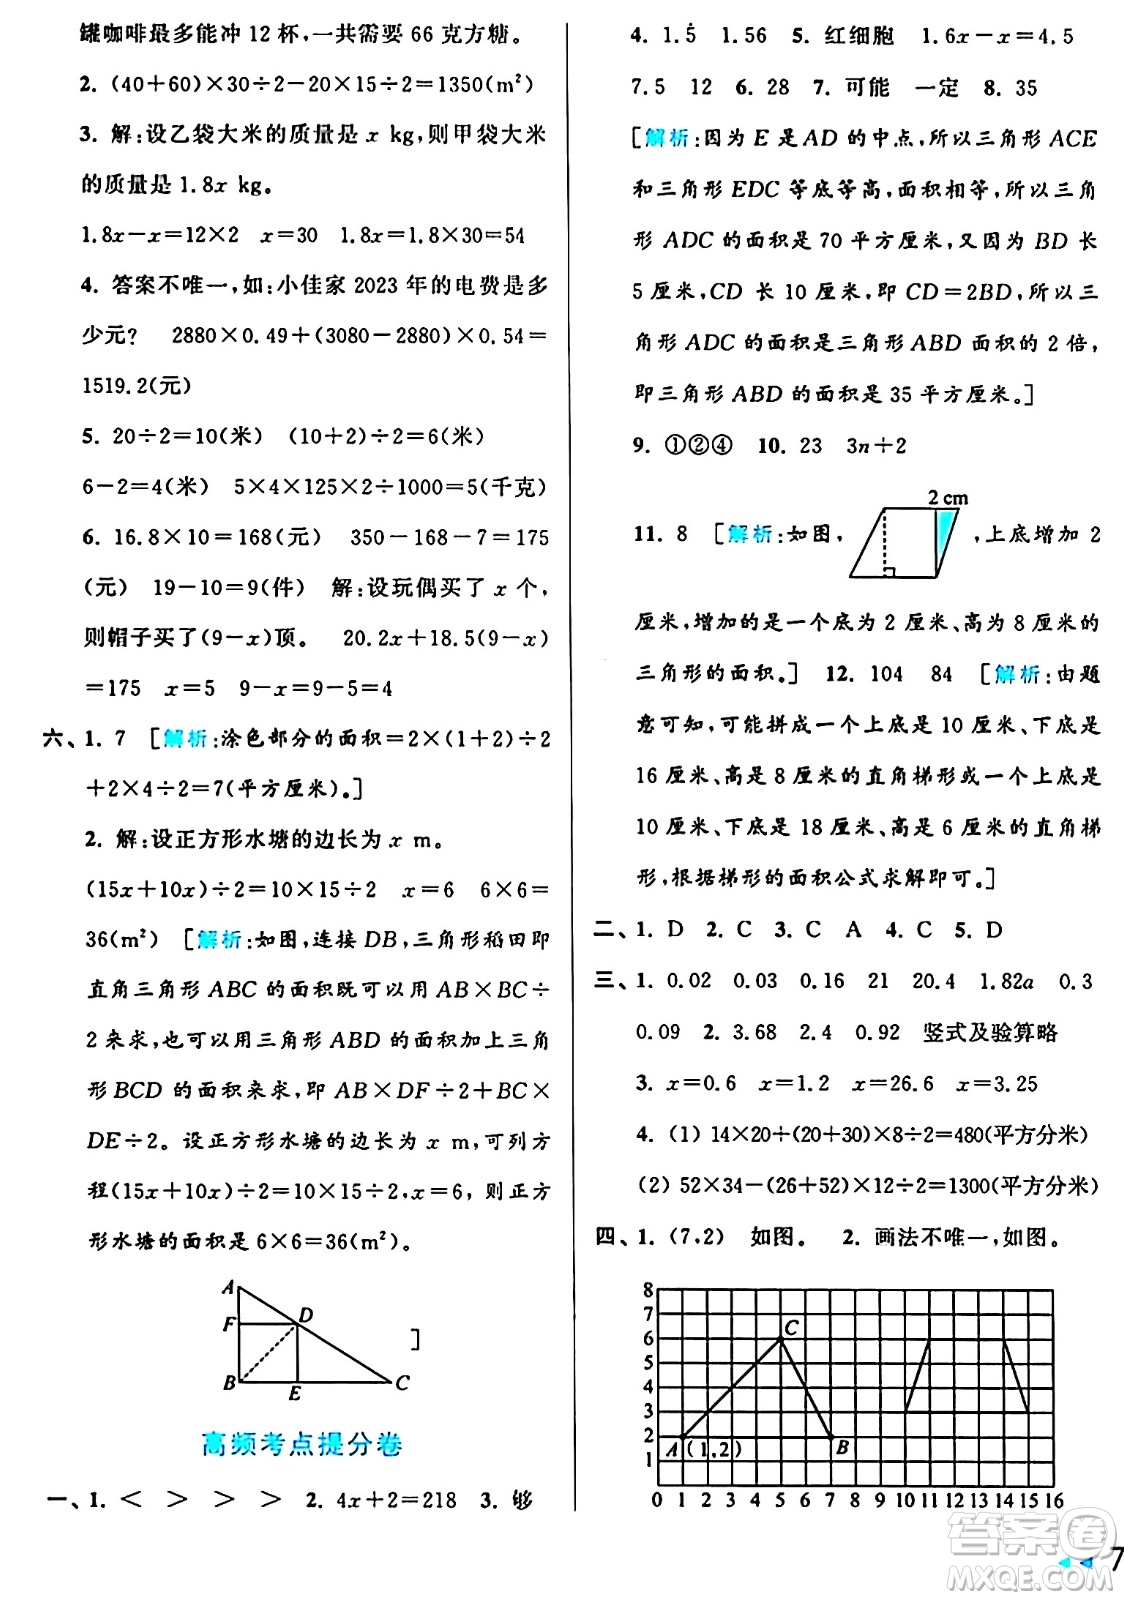 罐咖啡最多能冲 12 杯,一共需要 66 克方糖。
2. (40+60)×30÷2-20×15÷2=1350(m²)
3. 解:设乙袋大米的质量是 x kg,则甲袋大米
的质量是 1.8x kg。
1.8x-x=12×2 x=30 1.8x=1.8×30=54
4. 答案不唯一,如:小佳家 2023 年的电费是多
少元? 2880×0.49+(3080-2880)×0.54=
1519.2(元)
5. 20÷2=10(米) (10+2)÷2=6(米)
6-2=4(米) 5×4×125×2÷1000=5(千克)
6. 16.8×10=168(元) 350-168-7=175
(元) 19-10=9(件) 解:设玩偶买了 x 个,
则帽子买了(9-x)顶。 20.2x+18.5(9-x)
=175 x=5 9-x=9-5=4
六、1. 7 [解析:涂色部分的面积=2×(1+2)÷2
+2×4÷2=7(平方厘米)。]
2. 解:设正方形水塘的边长为 x m。
(15x+10x)÷2=10×15÷2 x=6 6×6=
36(m²) [解析:如图,连接 DB,三角形稻田即
直角三角形 ABC 的面积既可以用 AB×BC÷
2 来求,也可以用三角形 ABD 的面积加上三角
形 BCD 的面积来求,即 AB×DF÷2+BC×
DE÷2。设正方形水塘的边长为 x m,可列方
程(15x+10x)÷2=10×15÷2,x=6,则正方
形水塘的面积是 6×6=36(m²)。
A
F D
B E C
]
高频考点提分卷
一、1. < > > > 2. 4x+2=218 3. 够
4. 1.5̇ 1.56 5. 红细胞 1.6x-x=4.5
7.5 12 6. 28 7. 可能 一定 8. 35
[解析:因为 E 是 AD 的中点,所以三角形 ACE
和三角形 EDC 等底等高,面积相等,所以三角
形 ADC 的面积是 70 平方厘米,又因为 BD 长
5 厘米,CD 长 10 厘米,即 CD=2BD,所以三
角形 ADC 的面积是三角形 ABD 面积的 2 倍,
即三角形 ABD 的面积是 35 平方厘米。]
9. ①②④ 10. 23 3n+2
2 cm
11. 8 [解析:如图, ,上底增加 2
厘米,增加的是一个底为 2 厘米、高为 8 厘米的
三角形的面积。] 12. 104 84 [解析:由题
意可知,可能拼成一个上底是 10 厘米、下底是
16 厘米、高是 8 厘米的直角梯形或一个上底是
10 厘米、下底是 18 厘米、高是 6 厘米的直角梯
形,根据梯形的面积公式求解即可。]
二、1. D 2. C 3. C A 4. C 5. D
三、1. 0.02 0.03 0.16 21 20.4 1.82a 0.3
0.09 2. 3.68 2.4 0.92 竖式及验算略
3. x=0.6 x=1.2 x=26.6 x=3.25
4. (1) 14×20+(20+30)×8÷2=480(平方分米)
(2) 52×34-(26+52)×12÷2=1300(平方分米)
四、1. (7,2) 如图。 2. 画法不唯一,如图。
8
7
6 C
5
4
3
2
A(1,2) B
1
0 1 2 3 4 5 6 7 8 9 10 11 12 13 14 15 16
答案卷
MXQE.COM
7